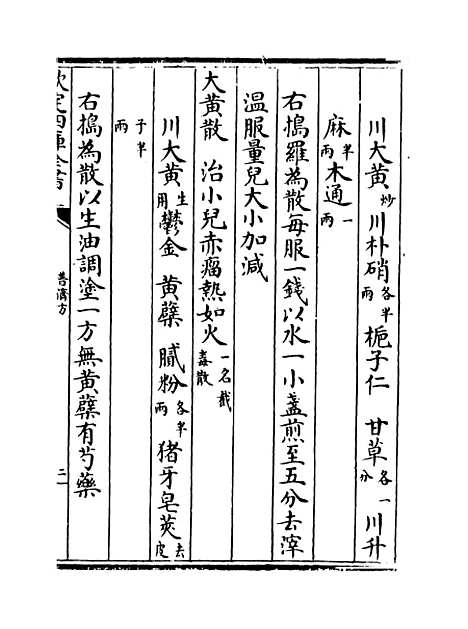 川大黄炒川朴硝各半兩梔子仁 甘草各一分川升
麻半兩木通一兩
右搗羅為散每服一錢以水一小盞煎至五分去滓
温服量兒大小加減
大黄散 治小兒赤瘤熱如火一名截毒散
川大黄生用鬱金 黄蘗 膩粉各半兩猪牙皂莢去皮
子半兩
右搗為散以生油調塗一方無黄蘗有芍藥
欽定四庫全書
普濟方
二